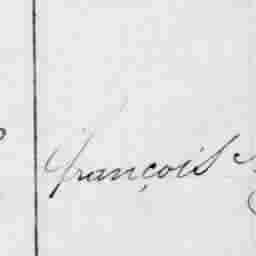 françois